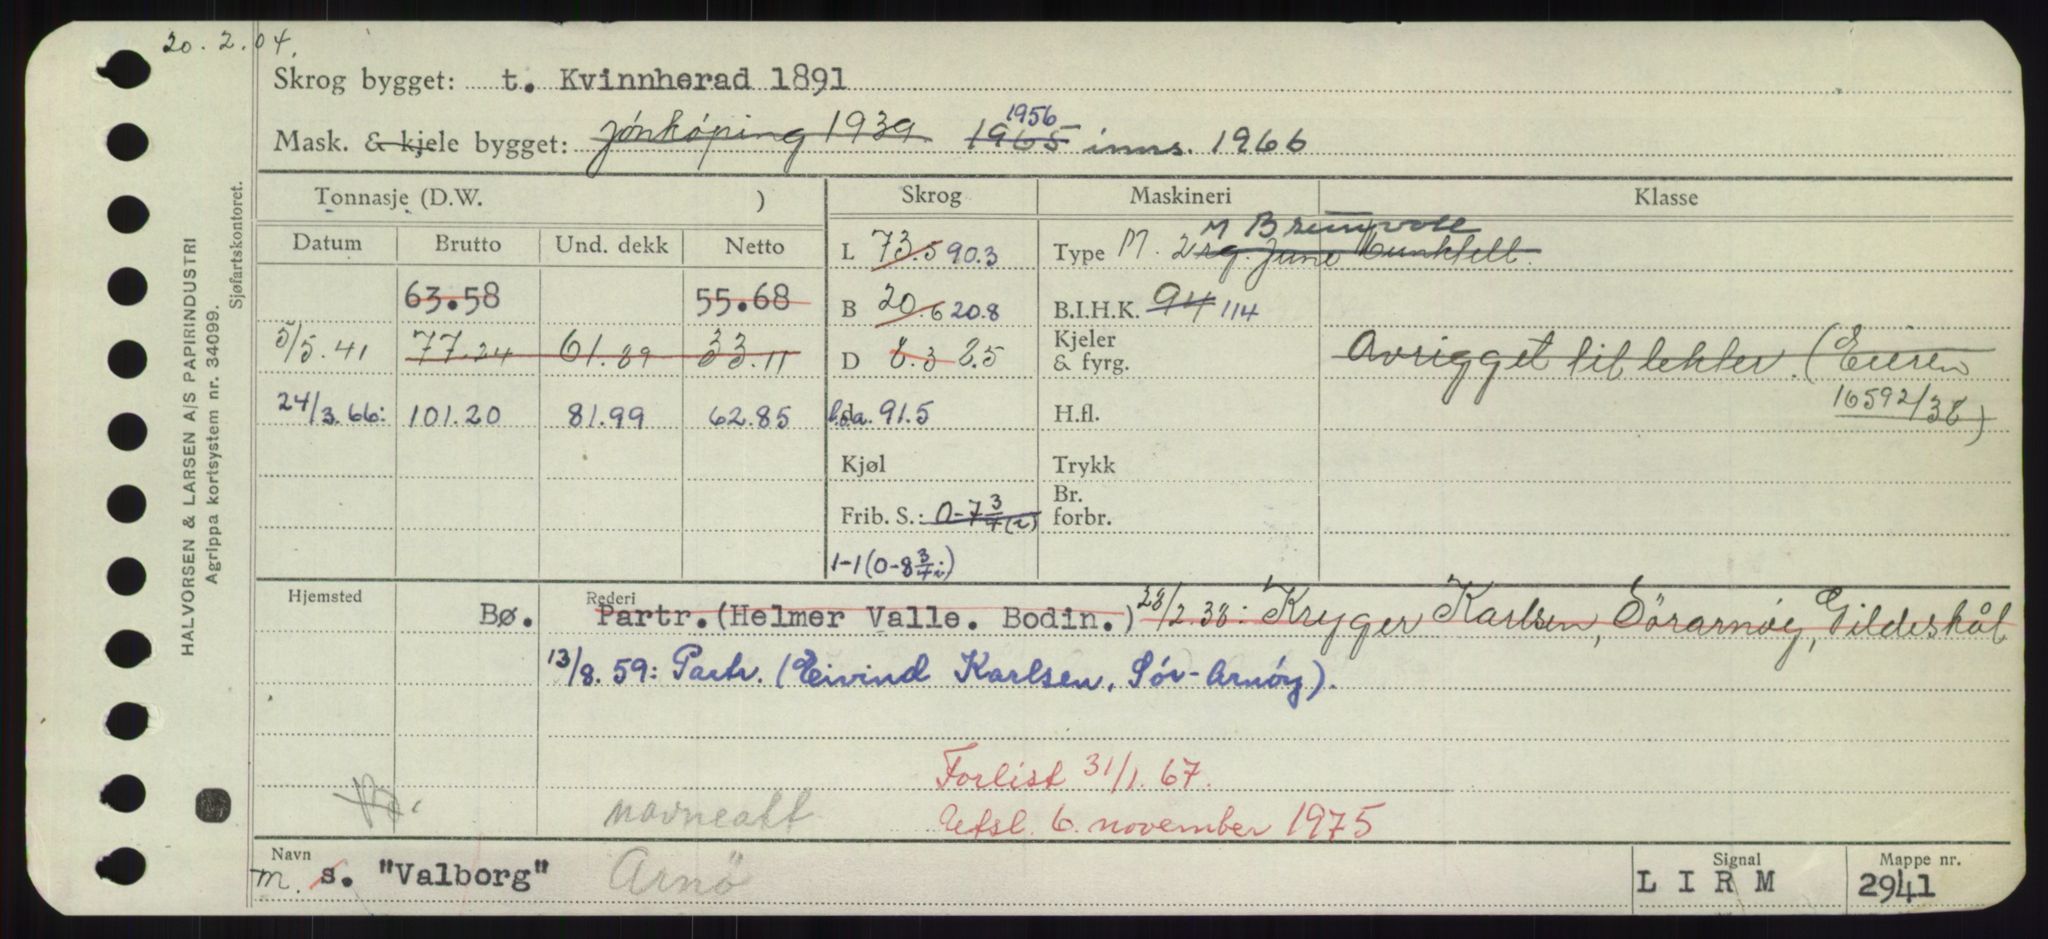 20.2.04.
Skrog bygget: t. Kvinnherad 1891
Mask. & kjele bygget: Jönköping 1939 1965 1956 inns. 1966
HALVORSEN & LARSEN A/S PAPIRINDUSTRI
Agrippa kortsystem nr. 34099.
Sjøfartskontoret.
Tonnasje (D.W. ) Skrog Maskineri Klasse
Datum Brutto Und. dekk Netto
L 73.5 90.3 Type M. 2 rg. June Munktell. M Brunvoll
63.58 55.68 B 20.6 20.8 B.I.H.K. 94 114
5/5.41 77.24 61.89 33.11 D 8.3 8.5 Kjeler & fyrg. Avrigget til lekter. (Eieren
16592/38)
24/3.66: 101.20 81.99 62.85 l.o.a. 91.5 H.fl.
Kjøl Trykk
Frib. S.: 0-7 3/4 (i) Br. forbr.
1-1 (0-8 3/4 i)
Hjemsted Rederi
Bø. Partr. (Helmer Valle. Bodin.) 28/2.38: Kryger Karlsen, Sörarnöy, Gildeskål
13/8.59: Partr. (Eivind Karlsen, Sör-Arnöy).
Forlist 31/1.67.
Bø. navneatt Utsl. 6. november 1975
Navn Signal Mappe nr.
m. s. "Valborg" Arnö L I R M 2941